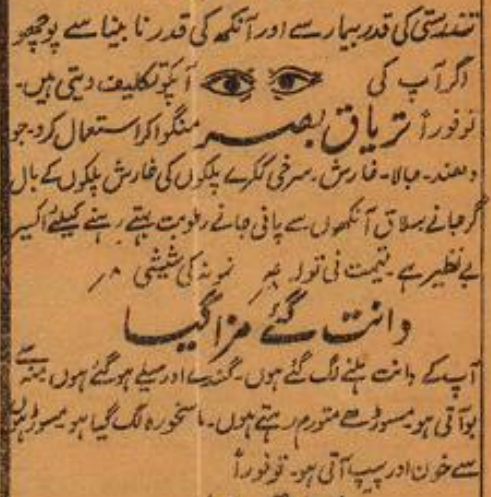 تندرستی کی قدر بیمار سے اور آنکھ کی قدر نابینا سے پوچھو
اگر آپ کی آپکو تکلیف دیتی ہیں۔
تو فوراً تریاق بصر منگوا کر استعمال کرو۔ جو
دھند۔ جالا۔ خارش۔ سرخی ککرے پلکوں کی خارش پلکوں کے بال
گرجانے سلاق آنکھوں سے پانی جانے رطوبت بہتے رہنے کیلئے اکسیر
بے نظیر ہے۔ قیمت فی تولہ نمونہ کی شیشی ۸؍
دانت گئے مزا گیا
آپ کے دانت ہلنے لگ گئے ہوں۔ گندے اور میلے ہو گئے ہوں۔ منہ سے
بو آتی ہو۔ مسوڑھے متورم رہتے ہوں۔ ماسخورہ لگ گیا ہو۔ مسوڑہوں
سے خون اور پیپ آتی ہو۔ تو فوراً